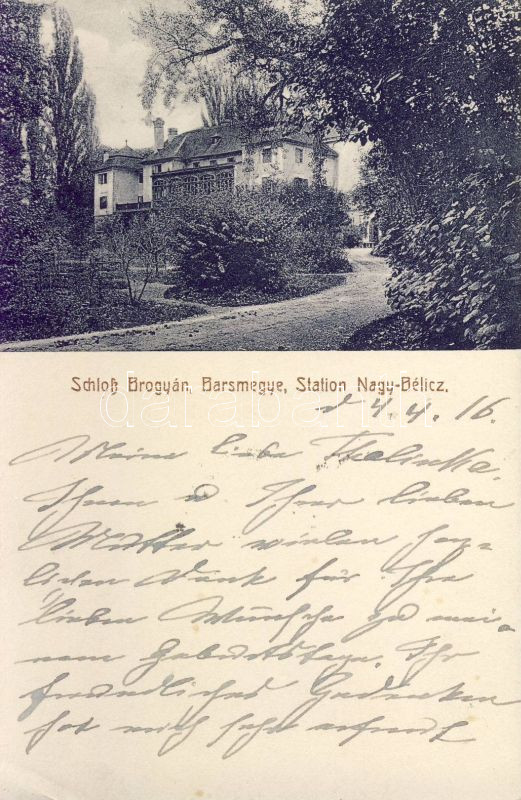 Schloß Brogyán, Barsmegye, Station Nagy-Bélicz.
d 4. 4. 16.
Meine liebe
Ihnen u. Ihrer lieben
Mutter vielen herz-
lichen Dank für Ihre
lieben Wünsche zu mei-
nem Geburtstage. Ihr
freundliches Gedenken
hat mich sehr erfreut